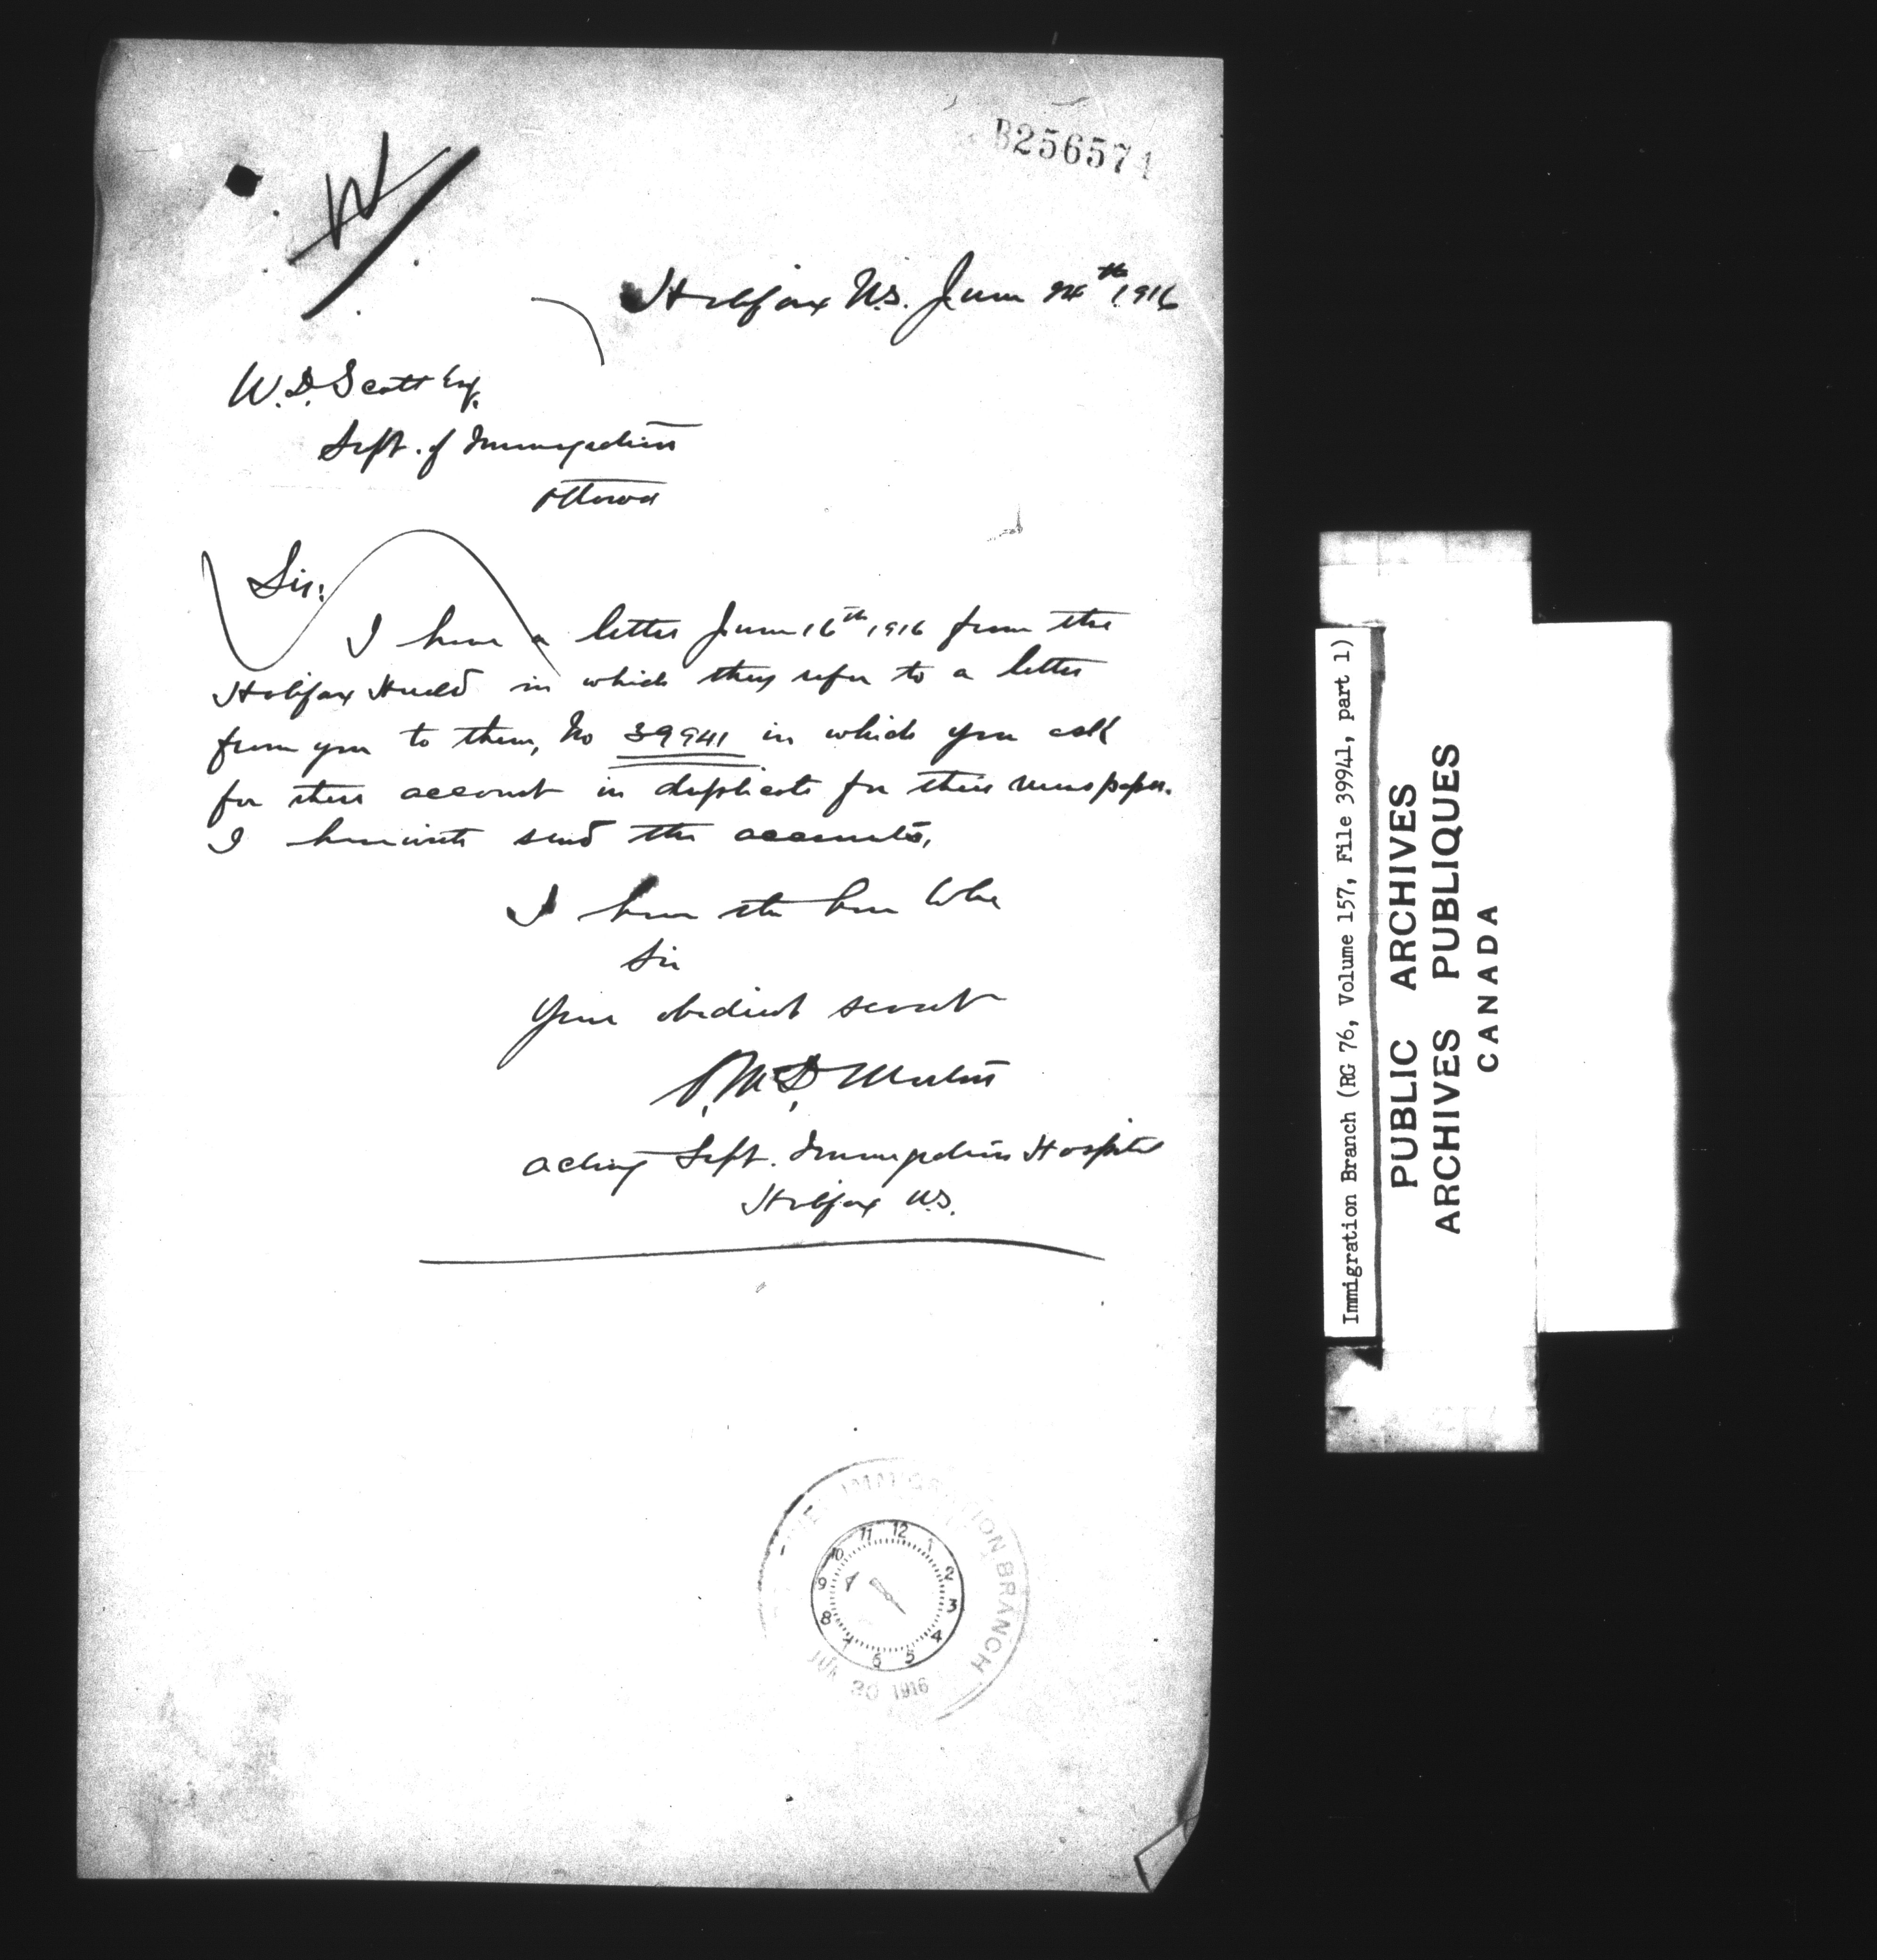 B256571
Halifax N.S. June 24th 1916
W. D. Scott Esq.
Dept. of Immigration
Ottawa
Sir:
I have a letter June 16th 1916 from the
Halifax Herald in which they refer to a letter
from you to them, No 39941 in which you ask
for their account in duplicate for their newspaper.
I herewith send the accounts.
I have the honor to be
Sir
Your obedient servant
acting Supt. Immigration Hospital
Halifax N.S.
IMMIGRATION BRANCH
12 1 2 3 4 5 6 7 8 9 10 11
JUN 30 1916
Immigration Branch (RG 76, Volume 157, File 39941, part 1)
PUBLIC ARCHIVES
ARCHIVES PUBLIQUES
CANADA